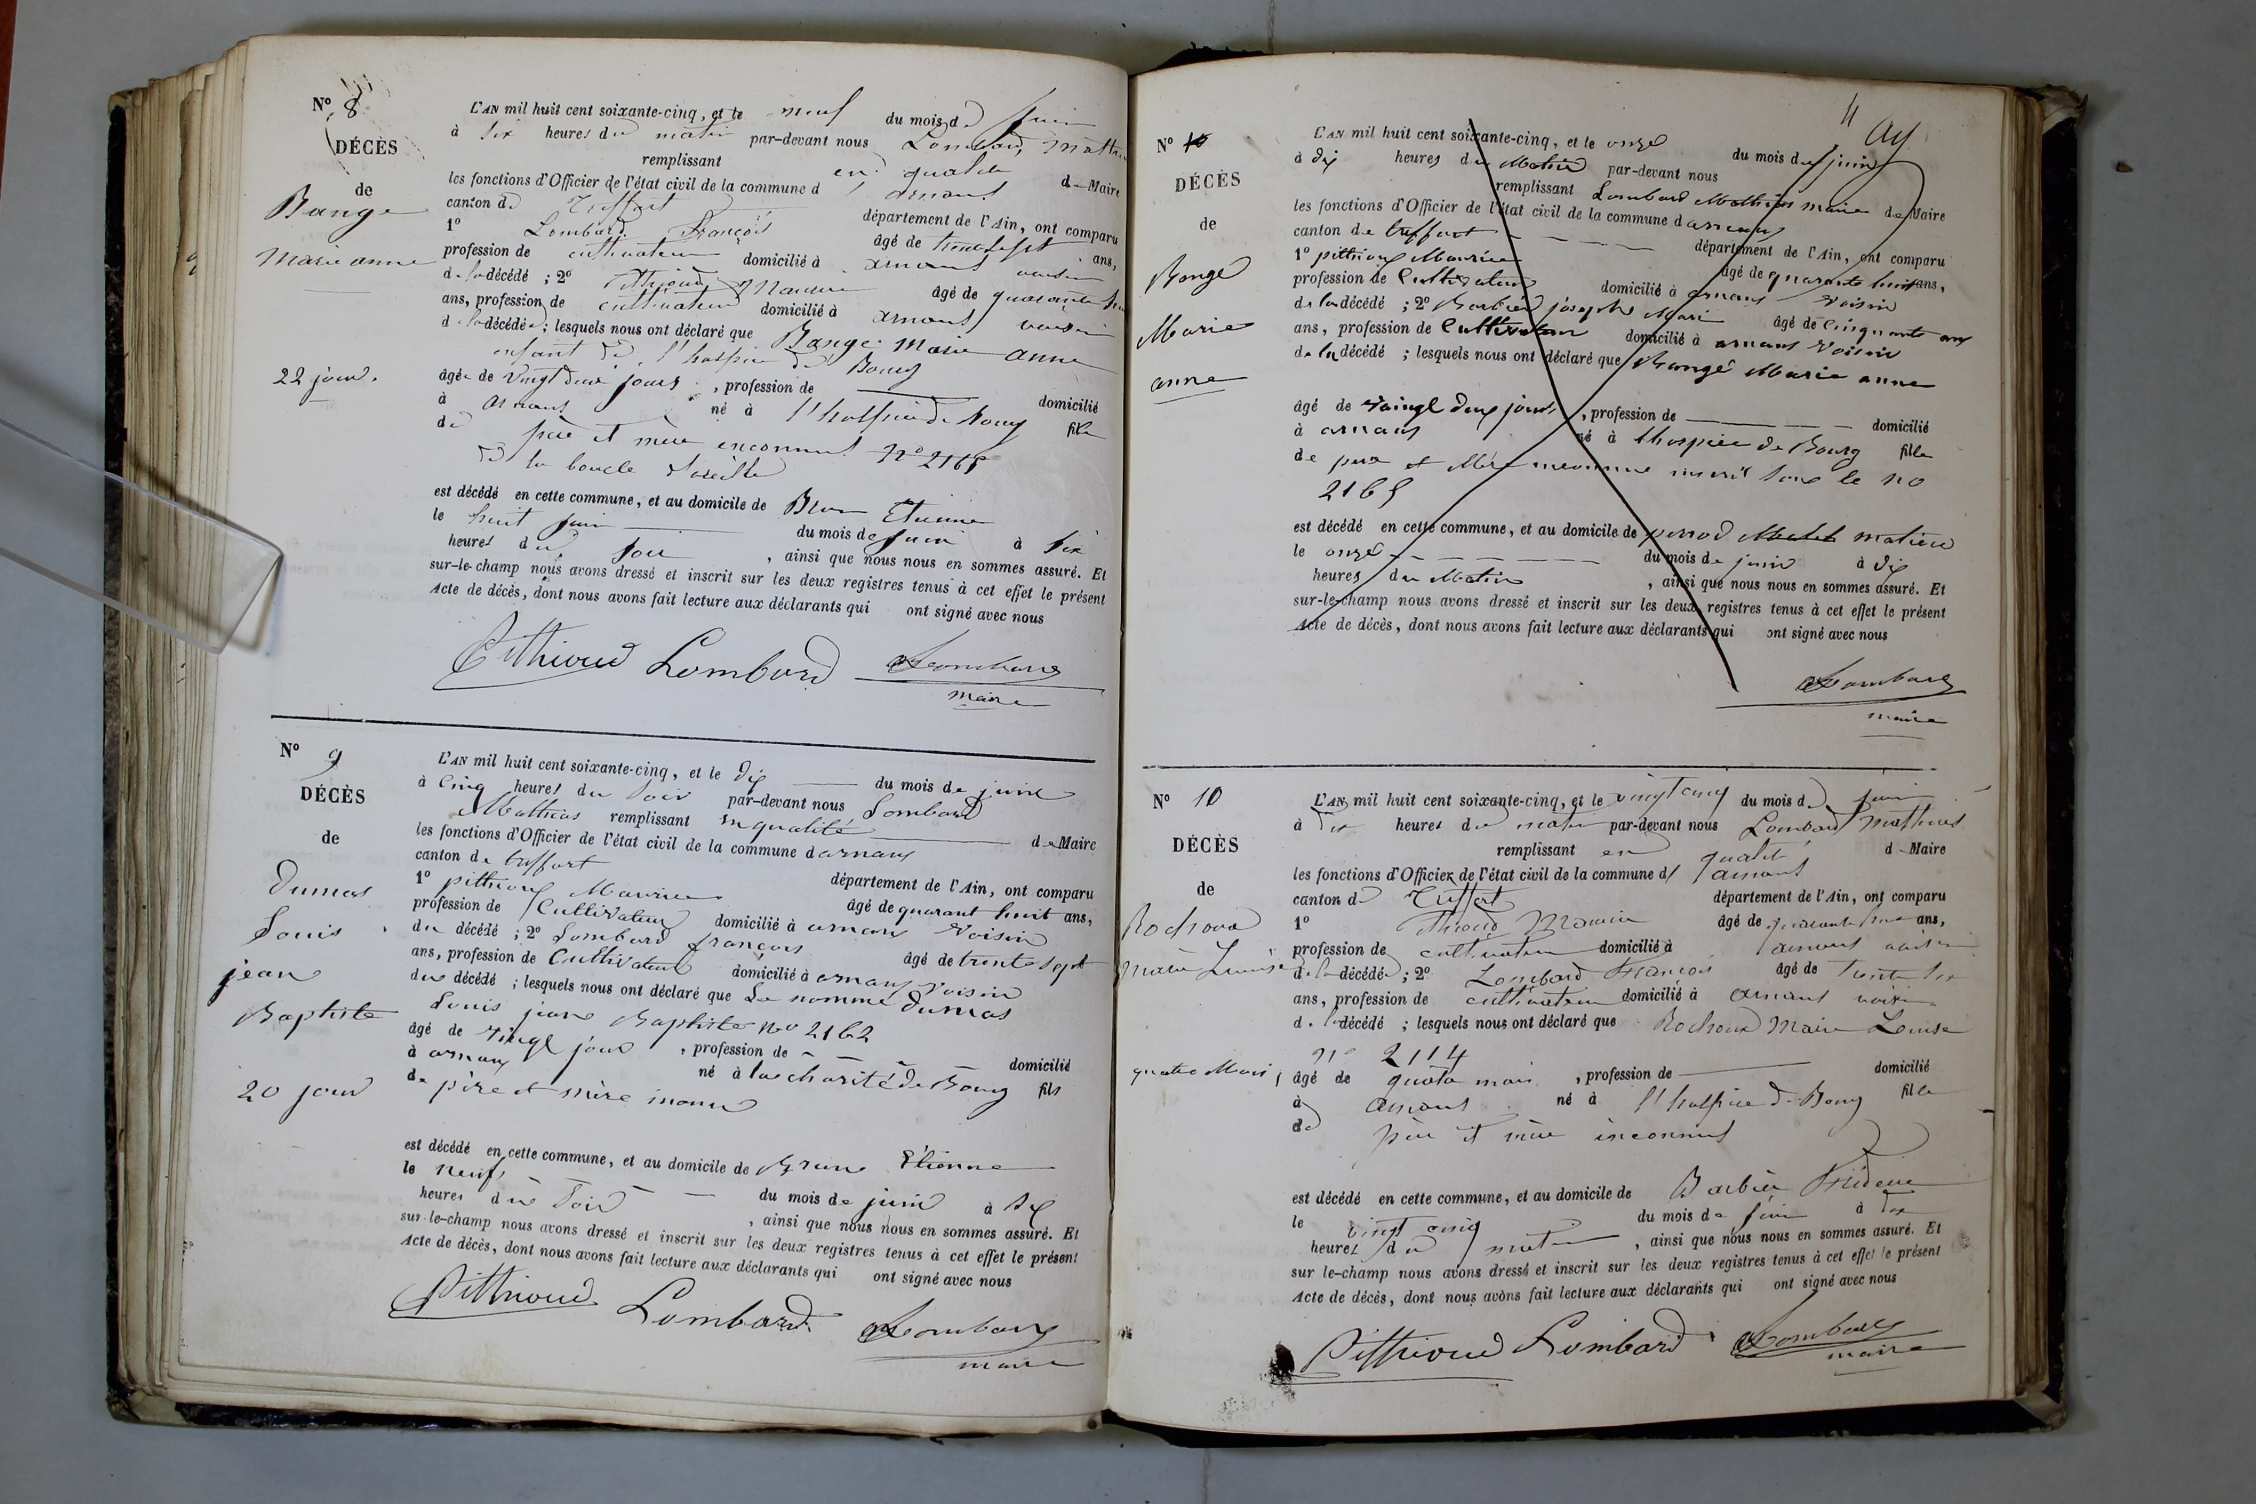 N° 8
DÉCÈS
de
Bange
Marie anne
22 jour.
L'AN mil huit cent soixante-cinq, et le neuf du mois de juin
à six heures du matin par-devant nous Lombard Mathieu
remplissant en qualité de Maire
les fonctions d'Officier de l'état civil de la commune d arnans
canton de Treffort département de l'Ain, ont comparu
1° Lombard François âgé de trente sept ans,
profession de cultivateur domicilié à arnans voisin
de la décédé ; 2° Pithioud Maurice âgé de quarante huit
ans, profession de cultivateur domicilié à arnans voisin
de la décédée ; lesquels nous ont déclaré que Bange Marie anne
enfant de l'hospice de Bourg
âgée de vingt deux jours , profession de domicilié
à arnans né à l'hospice de Bourg fille
de père et mère inconnus N° 2165
de la boucle d'oreille
est décédé en cette commune, et au domicile de Brun Etienne
le huit juin du mois de juin à six
heures du soir , ainsi que nous nous en sommes assuré. Et
sur-le-champ nous avons dressé et inscrit sur les deux registres tenus à cet effet le présent
Acte de décès, dont nous avons fait lecture aux déclarants qui ont signé avec nous
Pithioud Lombard Lombard
maire
N° 9
DÉCÈS
de
Dumas
Louis
jean
Baptiste
20 jour
L'AN mil huit cent soixante-cinq, et le dix du mois de juin
à cinq heures du soir par-devant nous Lombard
Mathias remplissant en qualité de Maire
les fonctions d'Officier de l'état civil de la commune d arnans
canton de treffort département de l'Ain, ont comparu
1° pithioud Maurice âgé de quarant huit ans,
profession de Cultivateur domicilié à arnans voisin
du décédé ; 2° Lombard françois âgé de trente sept
ans, profession de Cultivateur domicilié à arnans voisin
du décédé ; lesquels nous ont déclaré que Le nommé Dumas
Louis jean Baptiste no 2162
âgé de vingt jour , profession de domicilié
à arnans né à la charité de Bourg fils
de père et mère inconu
est décédé en cette commune, et au domicile de Brun Etienne
le neuf du mois de juin à six
heures du soir , ainsi que nous nous en sommes assuré. Et
sur-le-champ nous avons dressé et inscrit sur les deux registres tenus à cet effet le présent
Acte de décès, dont nous avons fait lecture aux déclarants qui ont signé avec nous
Pithioud Lombard Lombard
maire
11
N° 10
DÉCÈS
de
Bongé
Marie
anne
L'AN mil huit cent soixante-cinq, et le onze du mois de juin
à dix heures du Matin par-devant nous
remplissant Lombard Mathias maire de Maire
les fonctions d'Officier de l'état civil de la commune d arnans
canton de treffort département de l'Ain, ont comparu
1° pithioud Maurice âgé de quarante huit ans,
profession de Cultivateur domicilié à arnans voisin
de la décédé ; 2° Barbier joseph Mari âgé de Cinquante ans
ans, profession de Cultivateur domicilié à arnans voisin
de la décédé ; lesquels nous ont déclaré que Bongé Marie anne
âgé de vaingt deux jours , profession de domicilié
à arnans né à lhospice de Bourg fille
de pere et Mère inconnue inscrit sous le no
2165
est décédé en cette commune, et au domicile de perrod matieu
le onze du mois de juin à dix
heures du Matin , ainsi que nous nous en sommes assuré. Et
sur-le-champ nous avons dressé et inscrit sur les deux registres tenus à cet effet le présent
Acte de décès, dont nous avons fait lecture aux déclarants qui ont signé avec nous
Lombard
maire
N° 10
DÉCÈS
de
Rochoux
Marie Louise
quatre Mois
L'AN mil huit cent soixante-cinq, et le vingt cinq du mois de juin
à dix heures du matin par-devant nous Lombard Mathias
remplissant en qualité de Maire
les fonctions d'Officier de l'état civil de la commune d arnans
canton de Treffort département de l'Ain, ont comparu
1° Pithioud Maurice âgé de quarante huit ans,
profession de cultivateur domicilié à arnans voisin
de la décédée ; 2° Lombard François âgé de trente six
ans, profession de cultivateur domicilié à arnans voisin
de la décédé ; lesquels nous ont déclaré que Rochoux Marie Louise
n° 2114
âgé de quatre mois , profession de domicilié
à arnans né à l'hospice de Bourg fille
de père et mère inconnus
est décédé en cette commune, et au domicile de Barbier
le vingt cinq du mois de juin à dix
heures du matin , ainsi que nous nous en sommes assuré. Et
sur le-champ nous avons dressé et inscrit sur les deux registres tenus à cet effet le présent
Acte de décès, dont nous avons fait lecture aux déclarants qui ont signé avec nous
Pithioud Lombard Lombard
maire